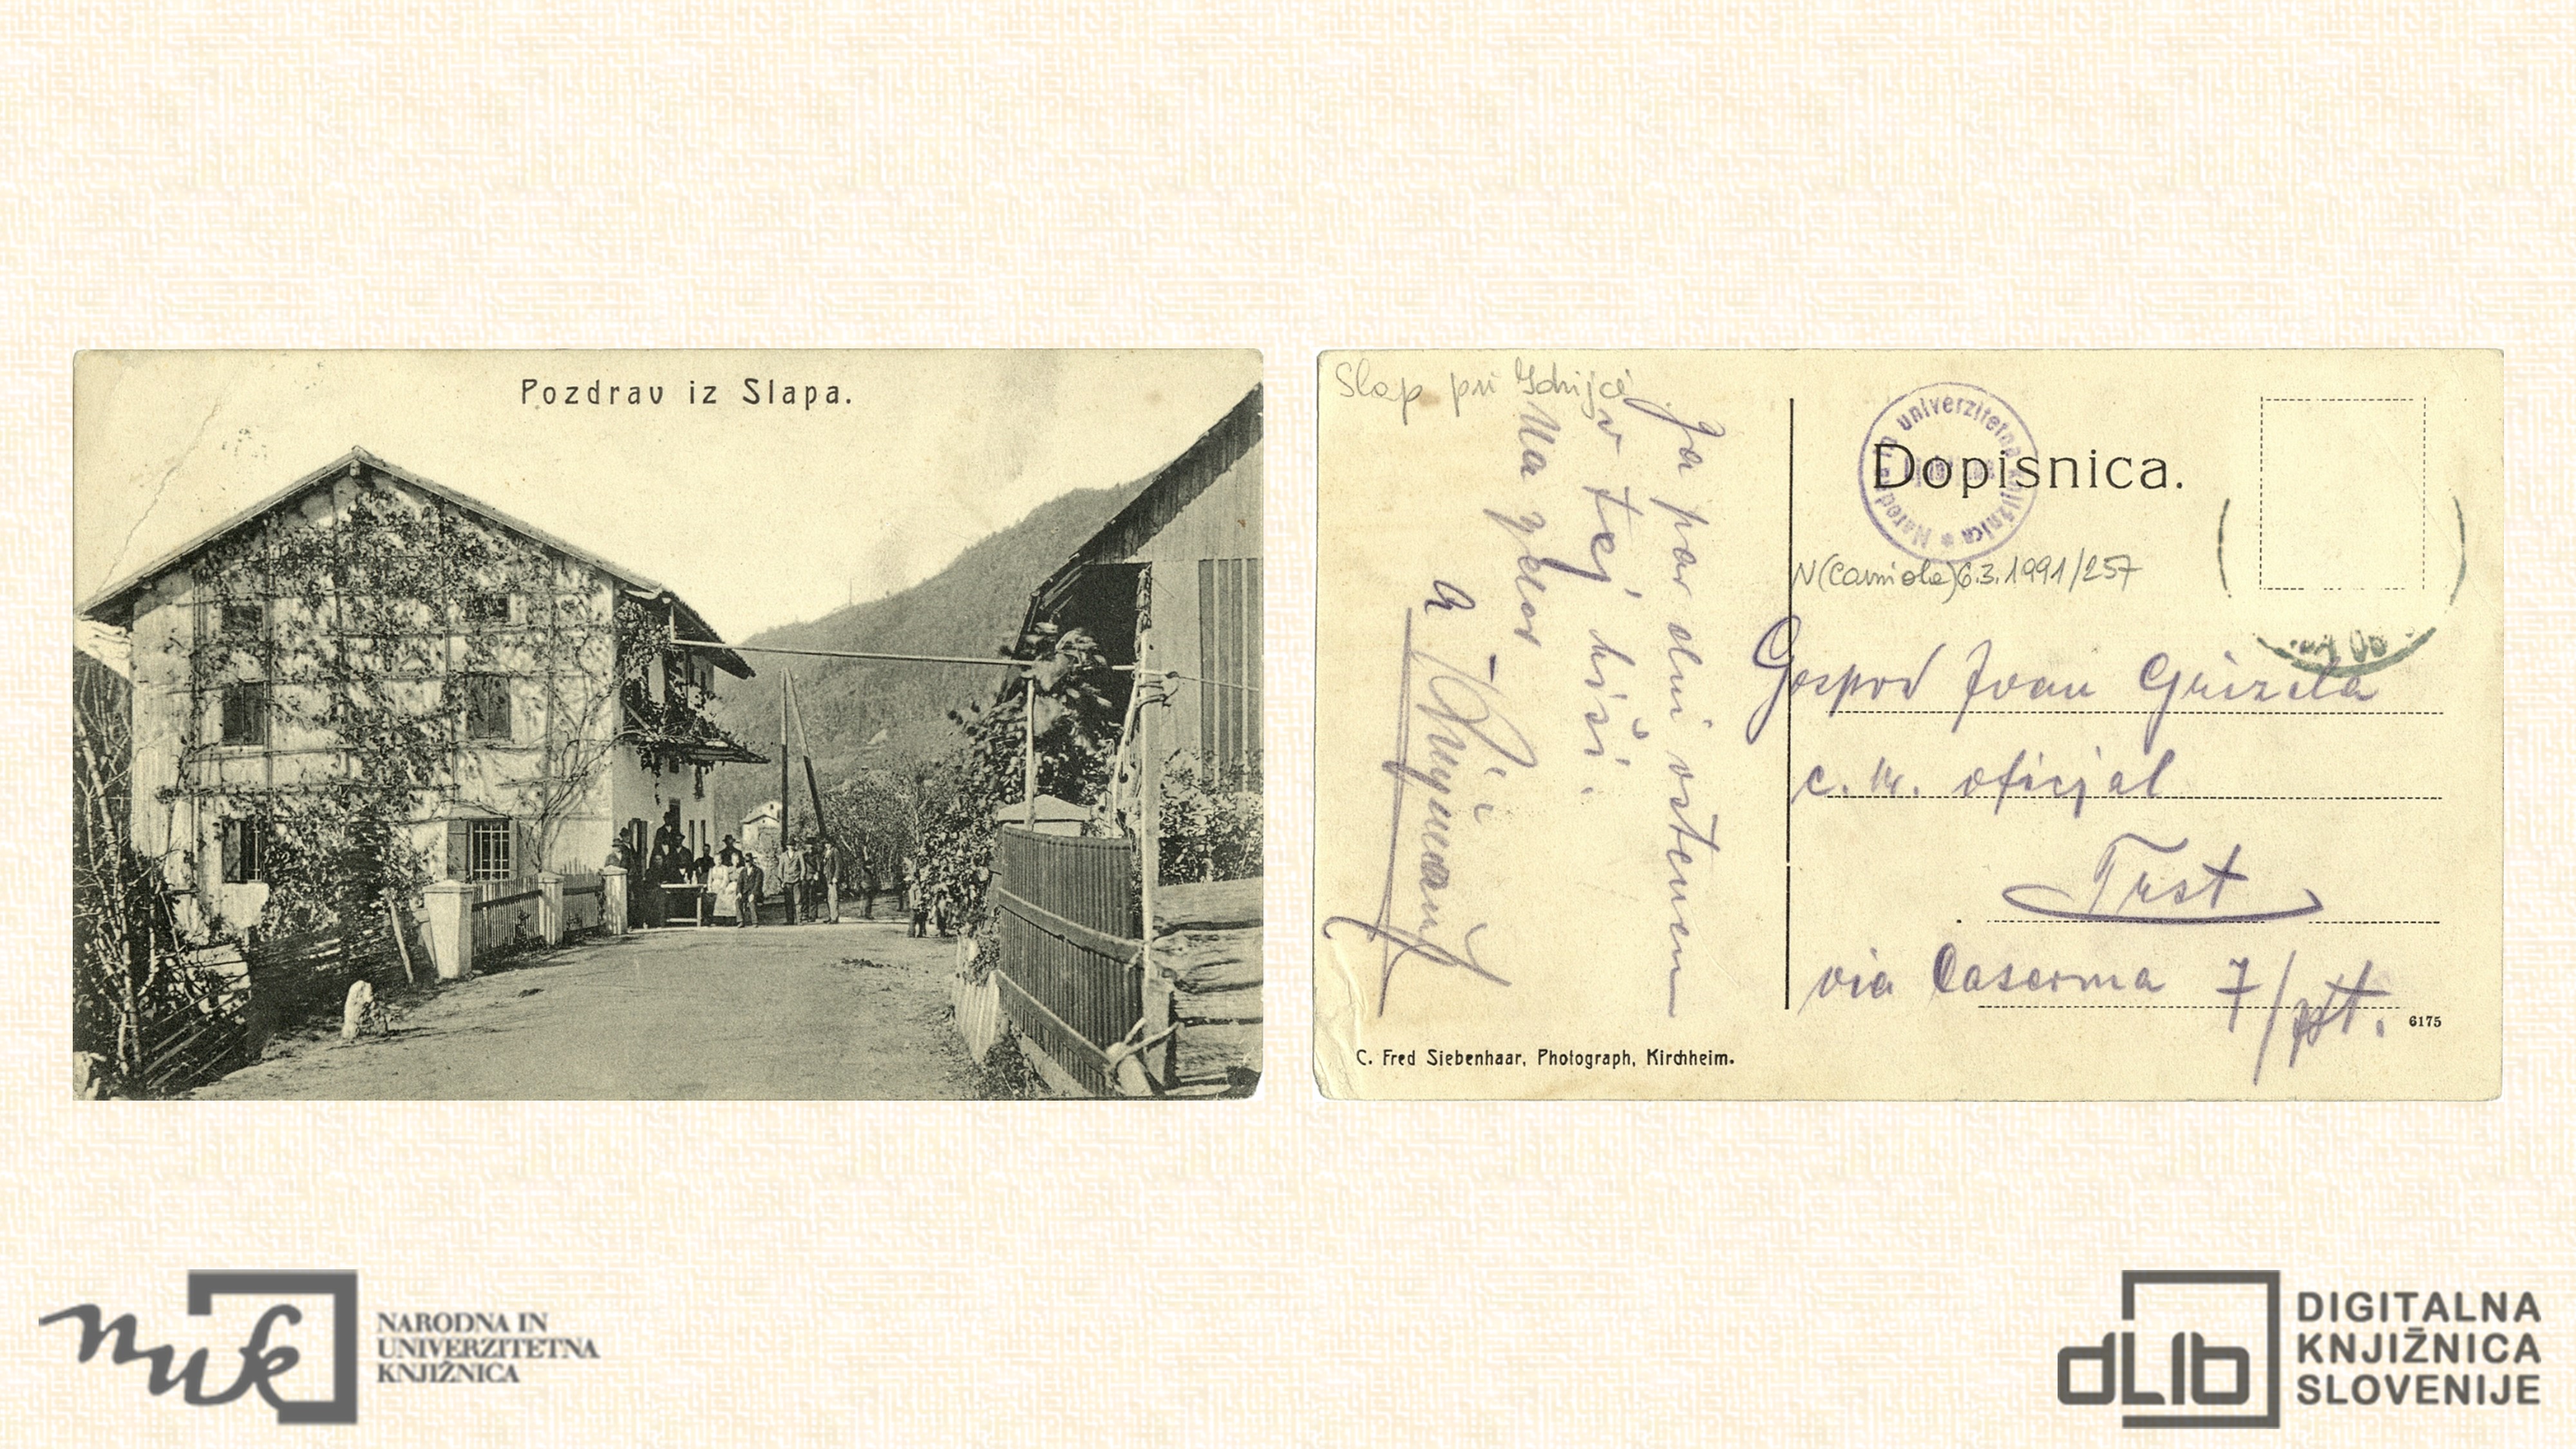 Pozdrav iz Slapa.
Slap pri Idrijci
Za par dni ostanem
v tej hiši.
Na zdar
Dopisnica.
Narodna in univerzitetna knjižnica *
N(Carniola)6.3.1991/257
Gospod Ivan Grizila
c. kr. oficjal
Trst
via Caserma 7/pt.
6175
C. Fred Siebenhaar, Photograph, Kirchheim.
nuk
NARODNA IN
UNIVERZITETNA
KNJIŽNICA
dLib
DIGITALNA
KNJIŽNICA
SLOVENIJE